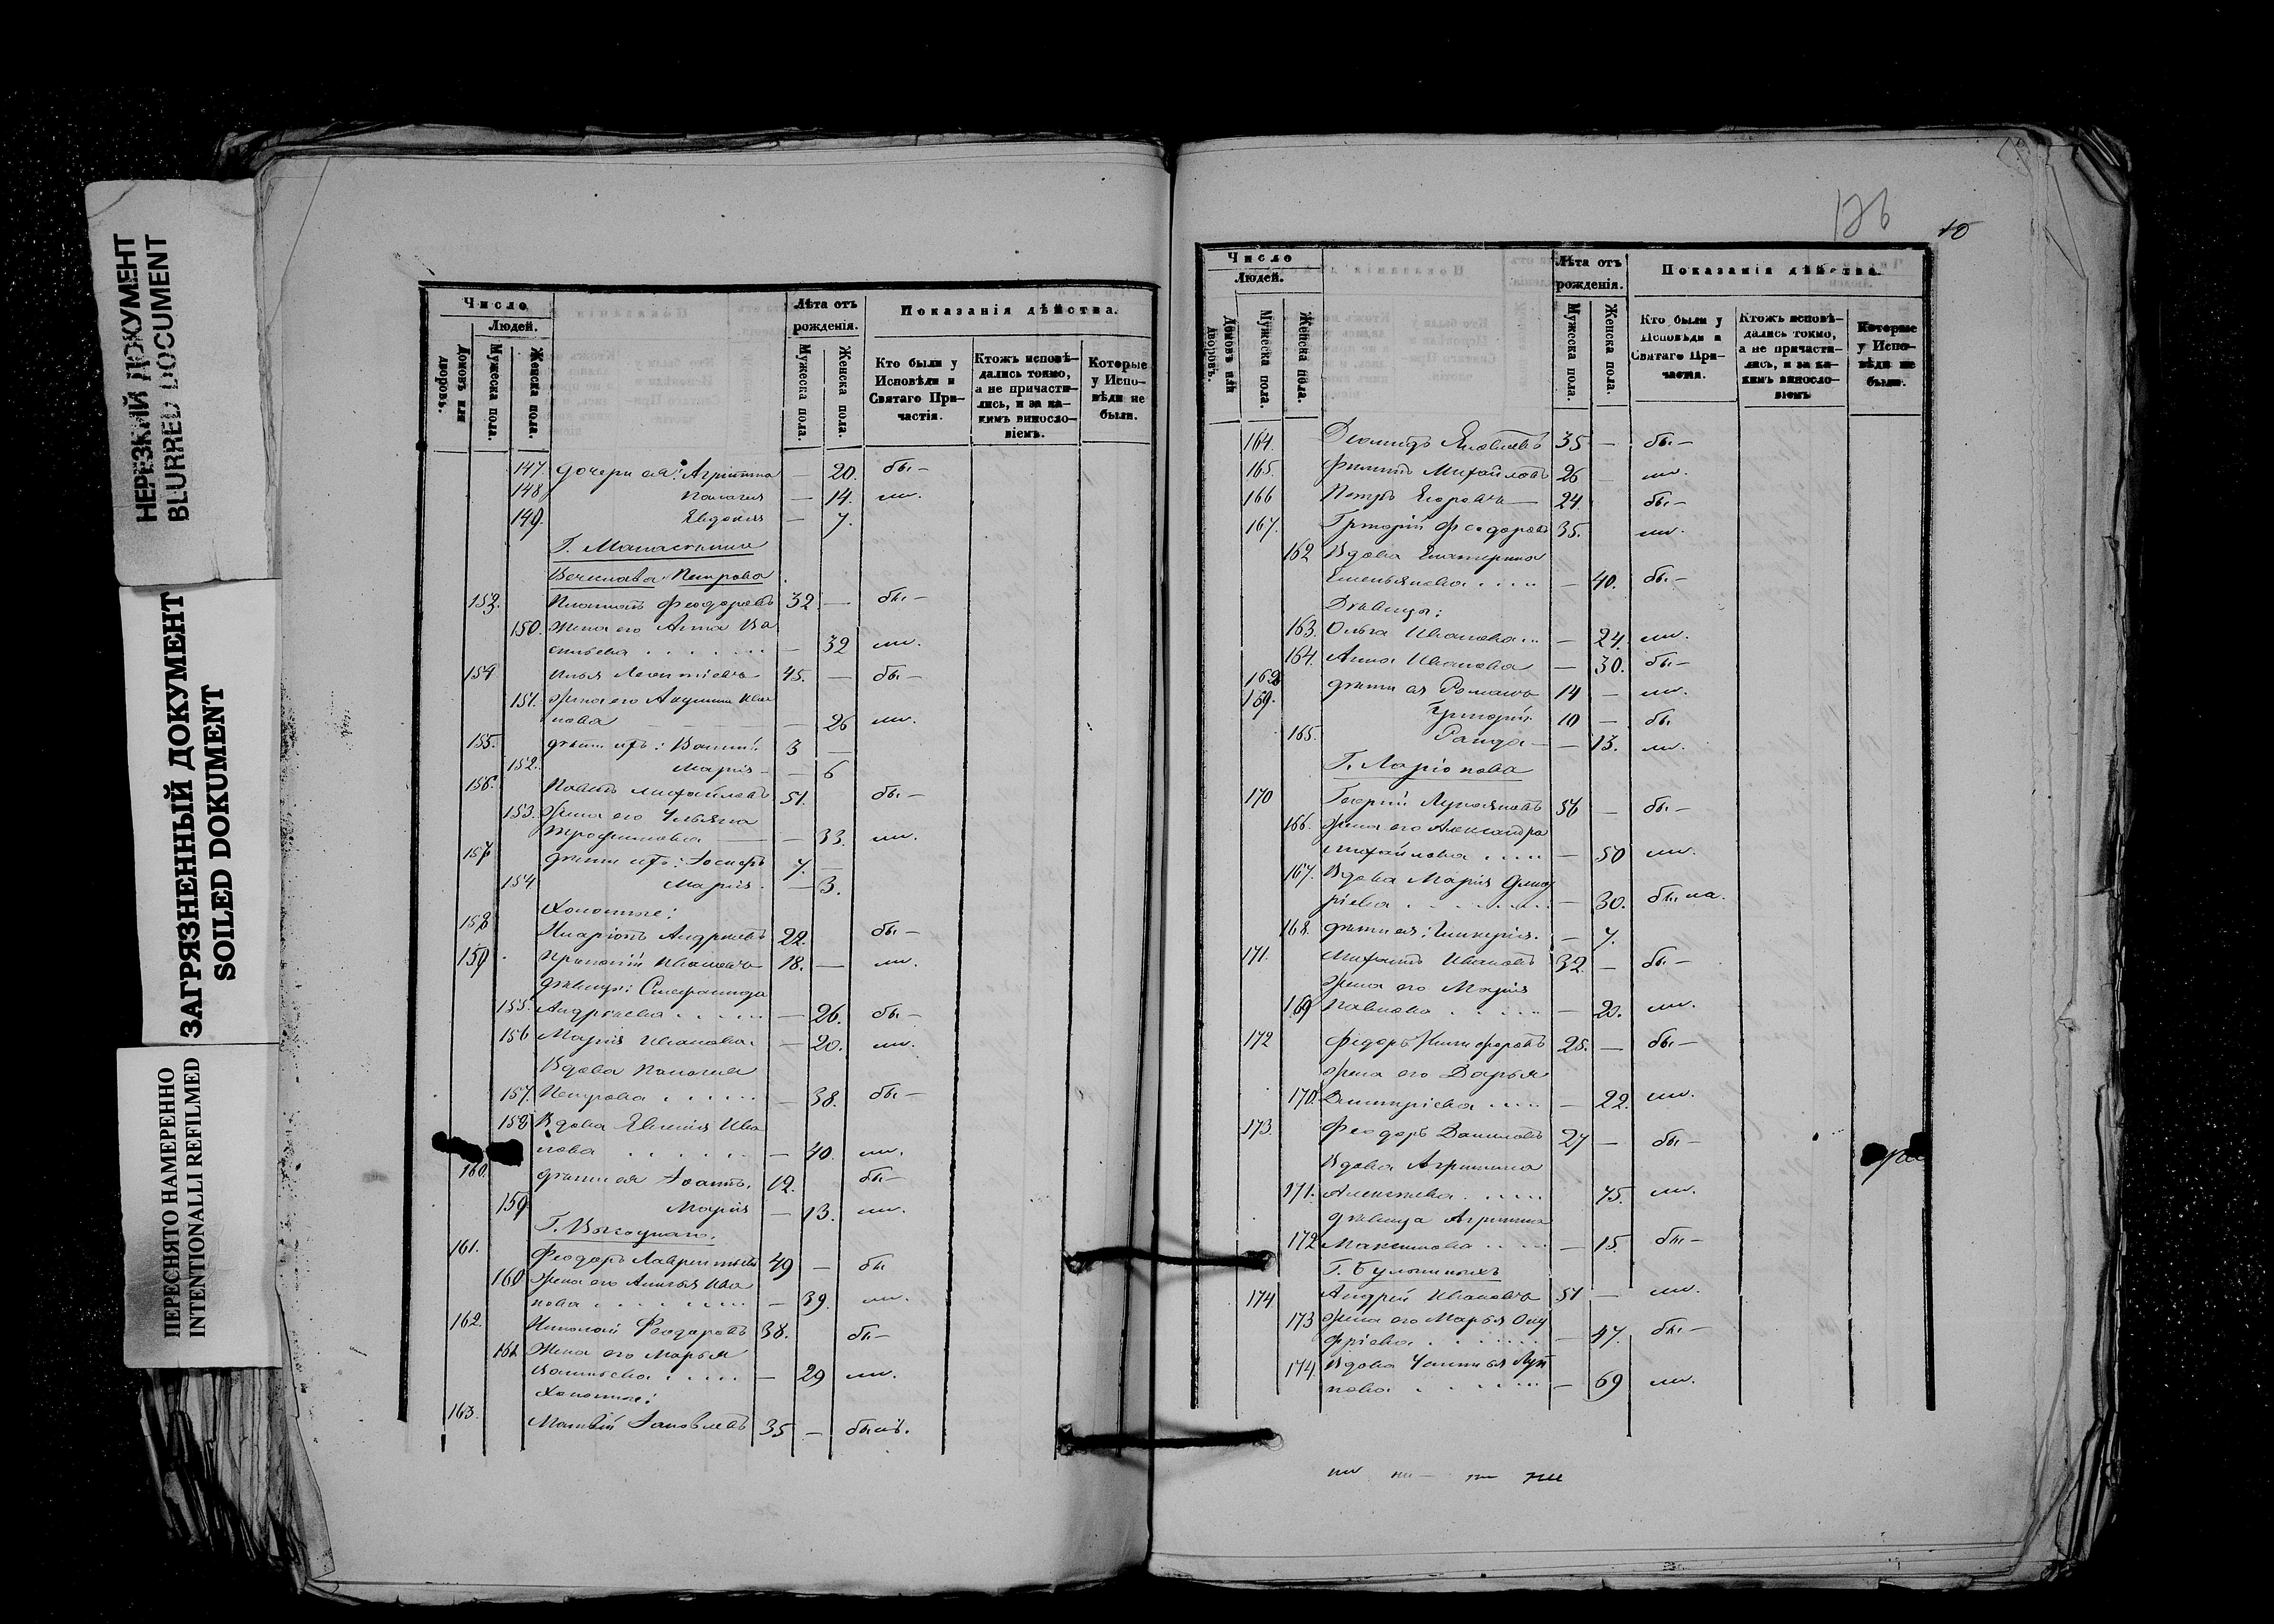 НЕРЕЗКИЙ ДОКУМЕНТ
BLURRED DOCUMENT
ЗАГРЯЗНЕННЫЙ ДОКУМЕНТ
SOILED DOKUMENT
ПЕРЕСНЯТО НАМЕРЕННО
INTENTIONALLI REFILMED
Число
Людей.
Домовъ или дворовъ.
Мужеска пола.
Женска пола.
Лѣта отъ рожденія.
Мужеска пола.
Женска пола.
Показанія дѣйства.
Кто были у Исповѣди и Святаго Причастія.
Ктожъ исповѣдались токмо, а не причастились, и за какимъ винословіемъ.
Которые у Исповѣди не были.
147. дочери ея: Агрипина — 20. бы —
148 Палагия — 14. ли.
149. Евдокия — 7.
Вечеслава Петрова
153. Феодоровъ 32 — бы —
150. Жена его Анна Ва
сильева — 32 ли.
154 Илья Леонтіевъ 45. — бы —
151. Жена его Акулина Ива
нова — 26 ли.
155. дѣти ихъ: 3 —
152. Марія — — 6
156. Павелъ Михайловъ 51. бы —
153. Жена его Ульяна
Трофимова — 33. ли.
157 дѣти ихъ: 7. —
154 Марія. — 3.
Холостые:
158 Иларіонъ Андреевъ 22. бы —
159 Прокопій Ивановъ 18. — ли.
дѣвицы: Степанида
155. Андреева — 26. бы —
156 Марія Иванова — 20. ли.
Вдова Палагия
157. Петрова — 38. бы —
158 Вдова Евгенія Ива
нова — 40. ли.
160. дѣти ея Іоаннъ. 12. бы —
159 Марія — 13. ли.
Г. Высоцкаго.
161. Феодоръ Лаврентьевъ 49 — бы
160 Жена его Ива
нова — 39. ли.
162. Николай Феодоровъ 38. бы —
161 Жена его Марья
Васильева — 29 ли.
Холостые:
163. Матвій Іаковлевъ 35 — былъ.
126
10
Число
Людей.
Домовъ или дворовъ.
Мужеска пола.
Женска пола.
Лѣта отъ рожденія.
Мужеска пола.
Женска пола.
Показанія дѣйства.
Кто были у Исповѣди и Святаго Причастія.
Ктожъ исповѣдались токмо, а не причастились, и за какимъ винословіемъ
Которые у Исповѣди не были.
164. Диомидъ Яковлевъ 35 — бы —
165. Филипъ Михайловъ 26 — ли.
166 Петръ Егоровъ — 24. бы —
167. Григорій Феодоровъ 35. ли.
162 Вдова Екатерина
Емельянова — 40. бы —
Дѣвицы:
163. Ольга Иванова — 24. ли.
164. Анна Иванова — 30. бы —
168 дѣти ея Романъ 14 — ли.
169. Григорій 10 — бы
165. — 13. ли.
Г. Ларіонова
170 Георгій Лукьяновъ 56 — бы —
166. Жена его Александра
Михайлова — 50 ли.
167. Вдова Марія Дмит
ріева — 30. была.
168. дѣти ея: Гликерія. — 7.
171. Ивановъ 32. — бы —
Жена его Марія
169 Павлова — 20. ли.
172 Федоръ Никифоровъ 28. — бы —
Жена его Дарья
170. Димитріева — 22. ли.
173. Феодоръ Даниловъ 27 — бы —
Вдова Агрипина
171. Алексѣева 75. ли.
дѣвица Агрипина
172 Максимова — 15. бы —
174. Андрей Ивановъ 51 — ли.
173 Жена его Марья Ону
фріева — 47. бы —
174. Вдова
нова — 69 ли.